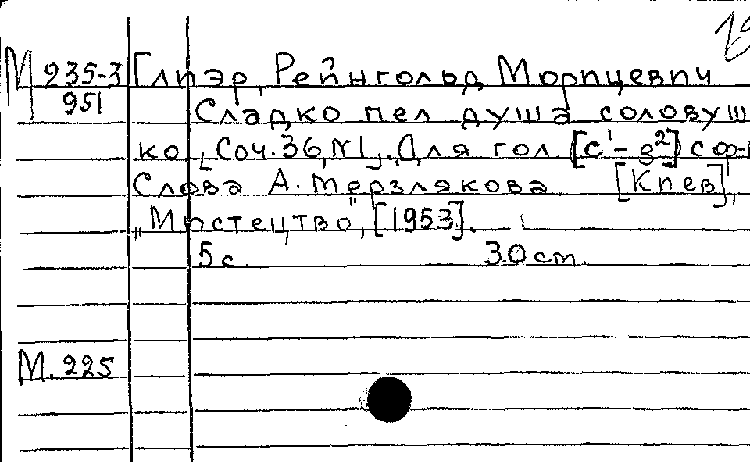 М 235-3 Глиэр, Рейнгольд Морицевич
951 Сладко пел душа соловуш
ко [Соч. 36, №1]. Для гол [c¹-g²] с ф-
Слова А. Мерзлякова. [Киев],
"Мистецтво", [1953].
5 с. 30 cm.
М. 225